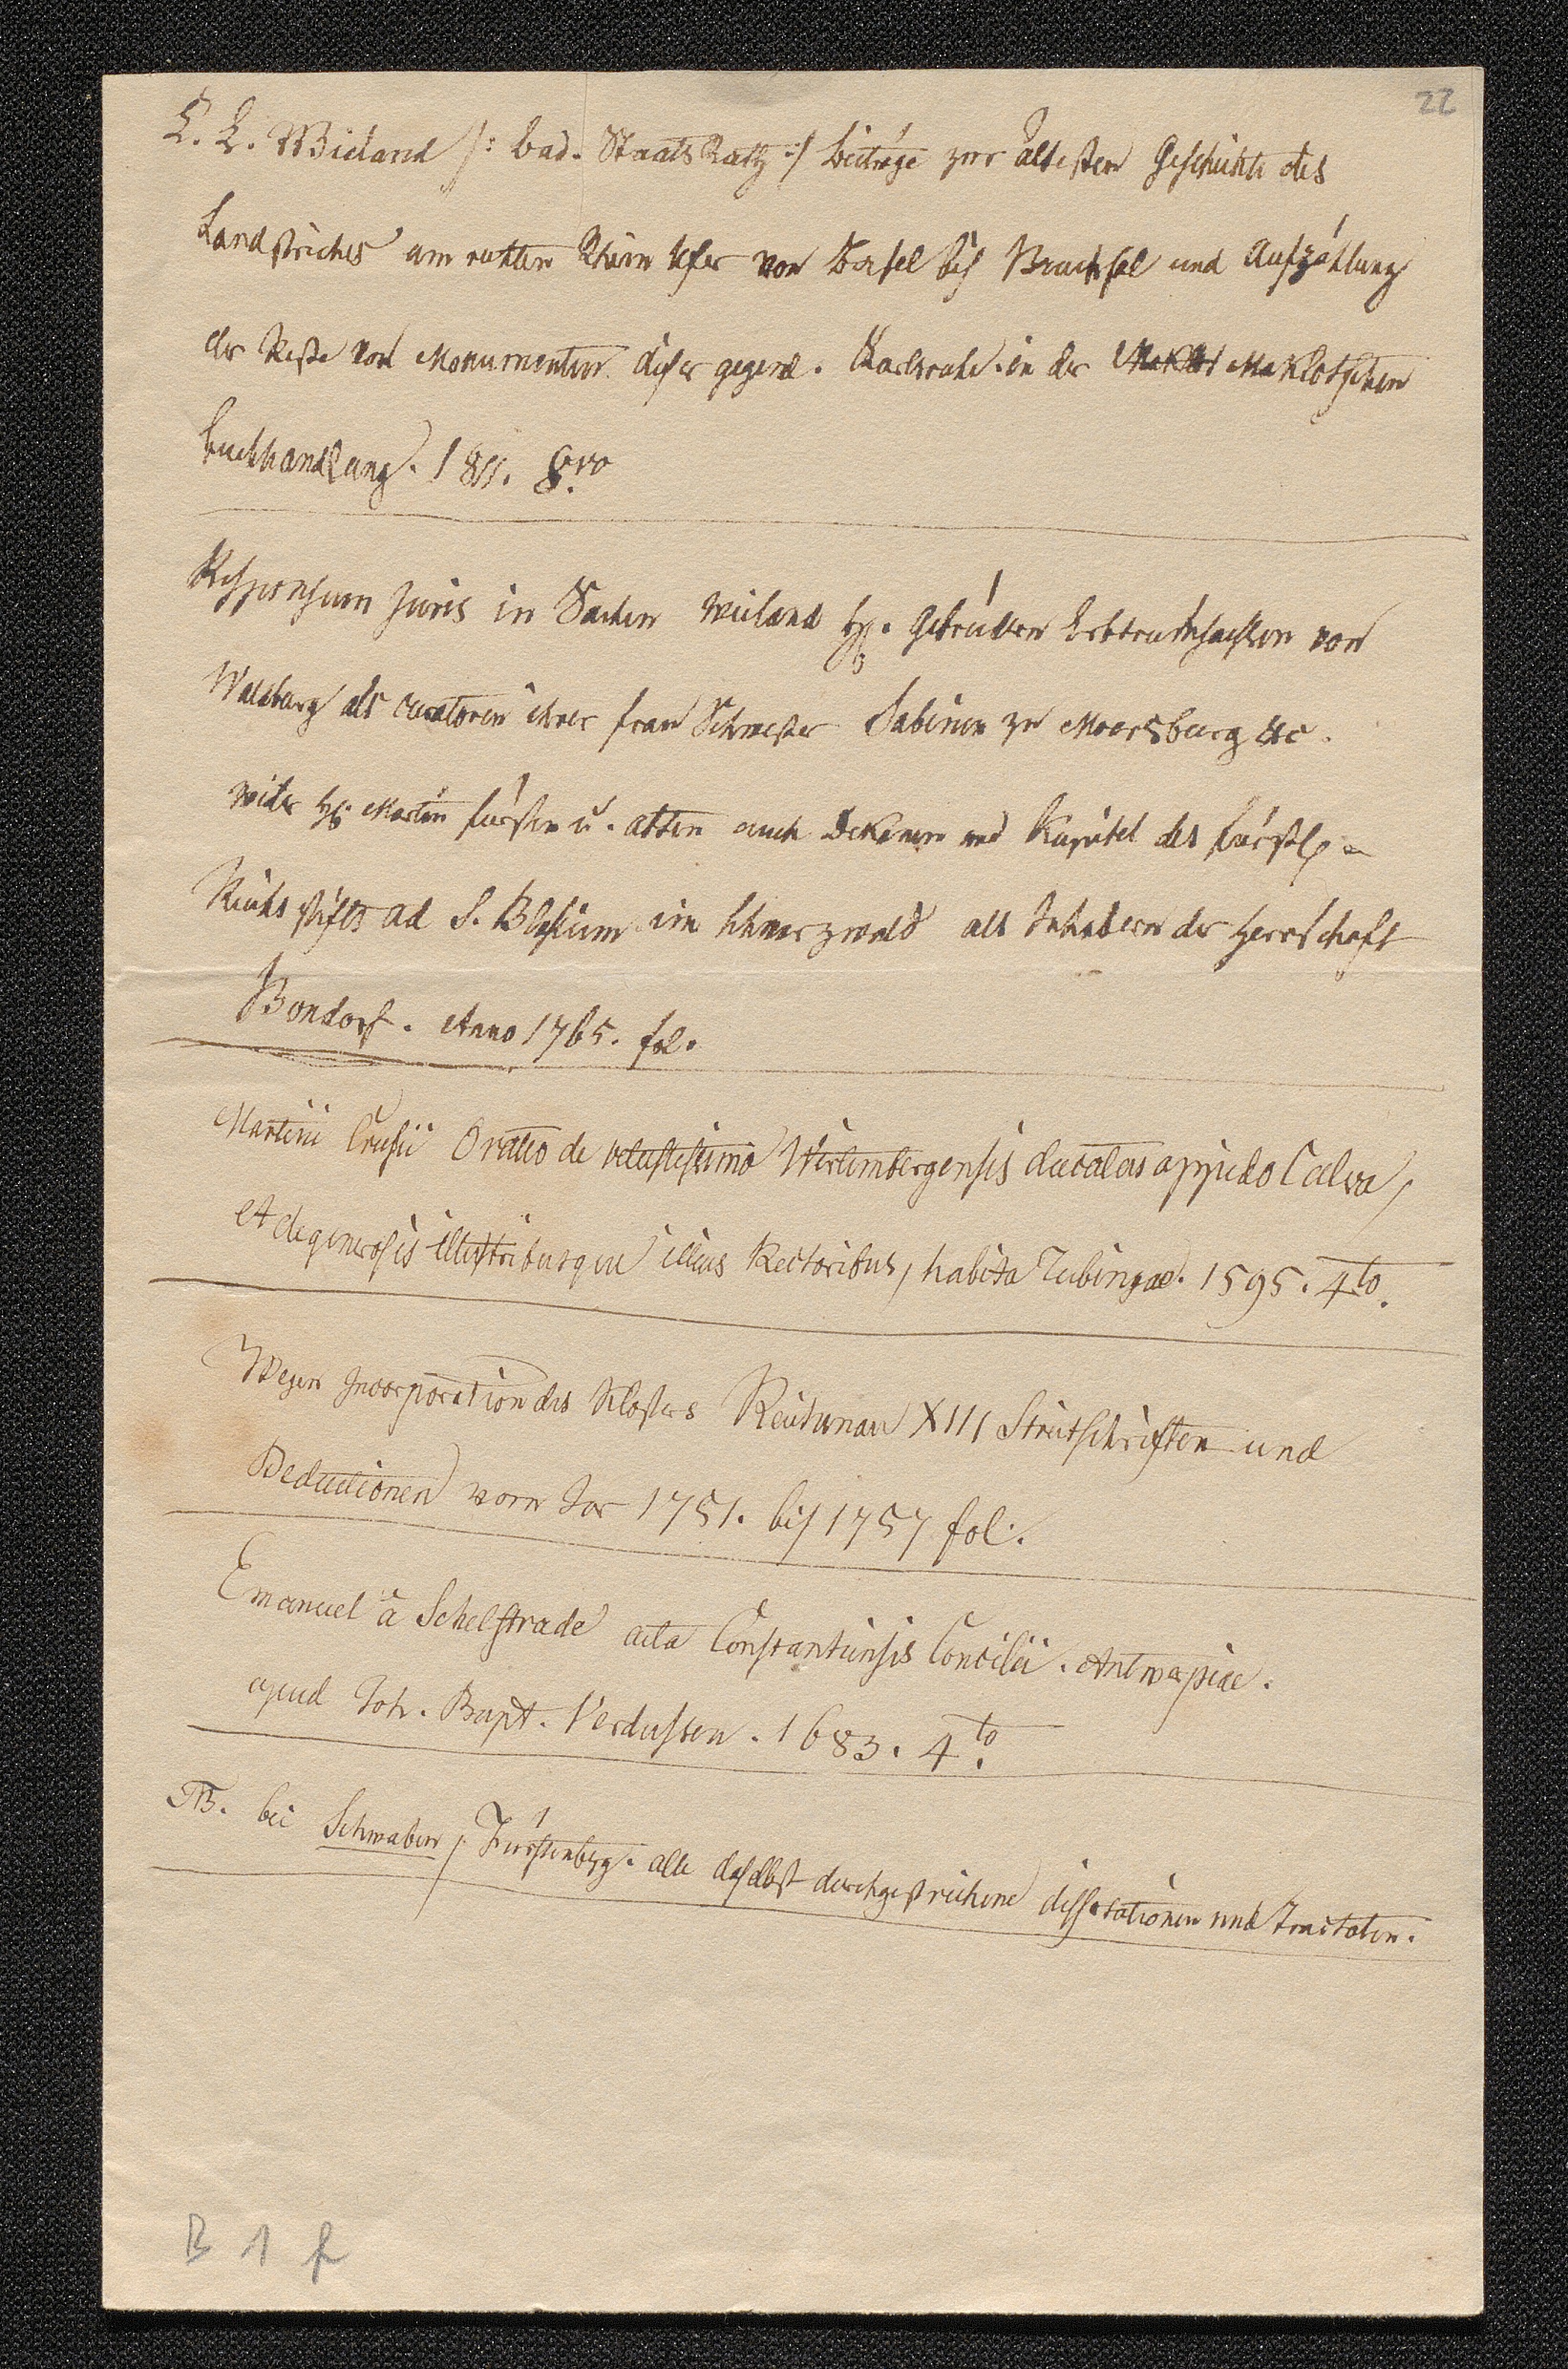 22
E. L. Wieland /: bad. StaatsRath :/ beiträge zur ältesten Geschichte des
Landstriches am rechten Rhein Ufer von Basel bis Bruchsal und Aufzählung
der Reste von Monumenten diser gegend. Karlsruhe. in der Maklot Maklotschen
buchhandlung. 1811. 8.vo
Responsum Juris in Sachen weiland H. Gebrüdern Erbtruchsaessen von
Waldburg als curatoren ihrer frau Schwester Sabinen zu Moersburg &c.
wider H. Martin fürsten u. abten auch Dekanen und Kapitel des fürstl.
Reichs stifts ad S. Blasium im schwarzwald als Inhabern der Herrschaft
Bondorf. Anno 1765. fol.
Martini Crusii Oratio de vetustissimo Wirtembergensis ducatus oppido Calva,
et de generosis illustribusque illius Rectoribus, habita Tubingae. 1595. 4to.
Wegen Incorporation des Klosters Reichenau XIII Streitschriften und
Deductionen vom Jar 1751. bis 1757 fol.
Emanuel à Schelstrade acta Constantiensis Concilii. Antwerpiae.
apud Joh. Bapt. Verdussen. 1683. 4.to
NB. bei Schwaben / Fürstenberg. alle daselbst durchgestrichene dissertationen und Tractaten.
B 1 f